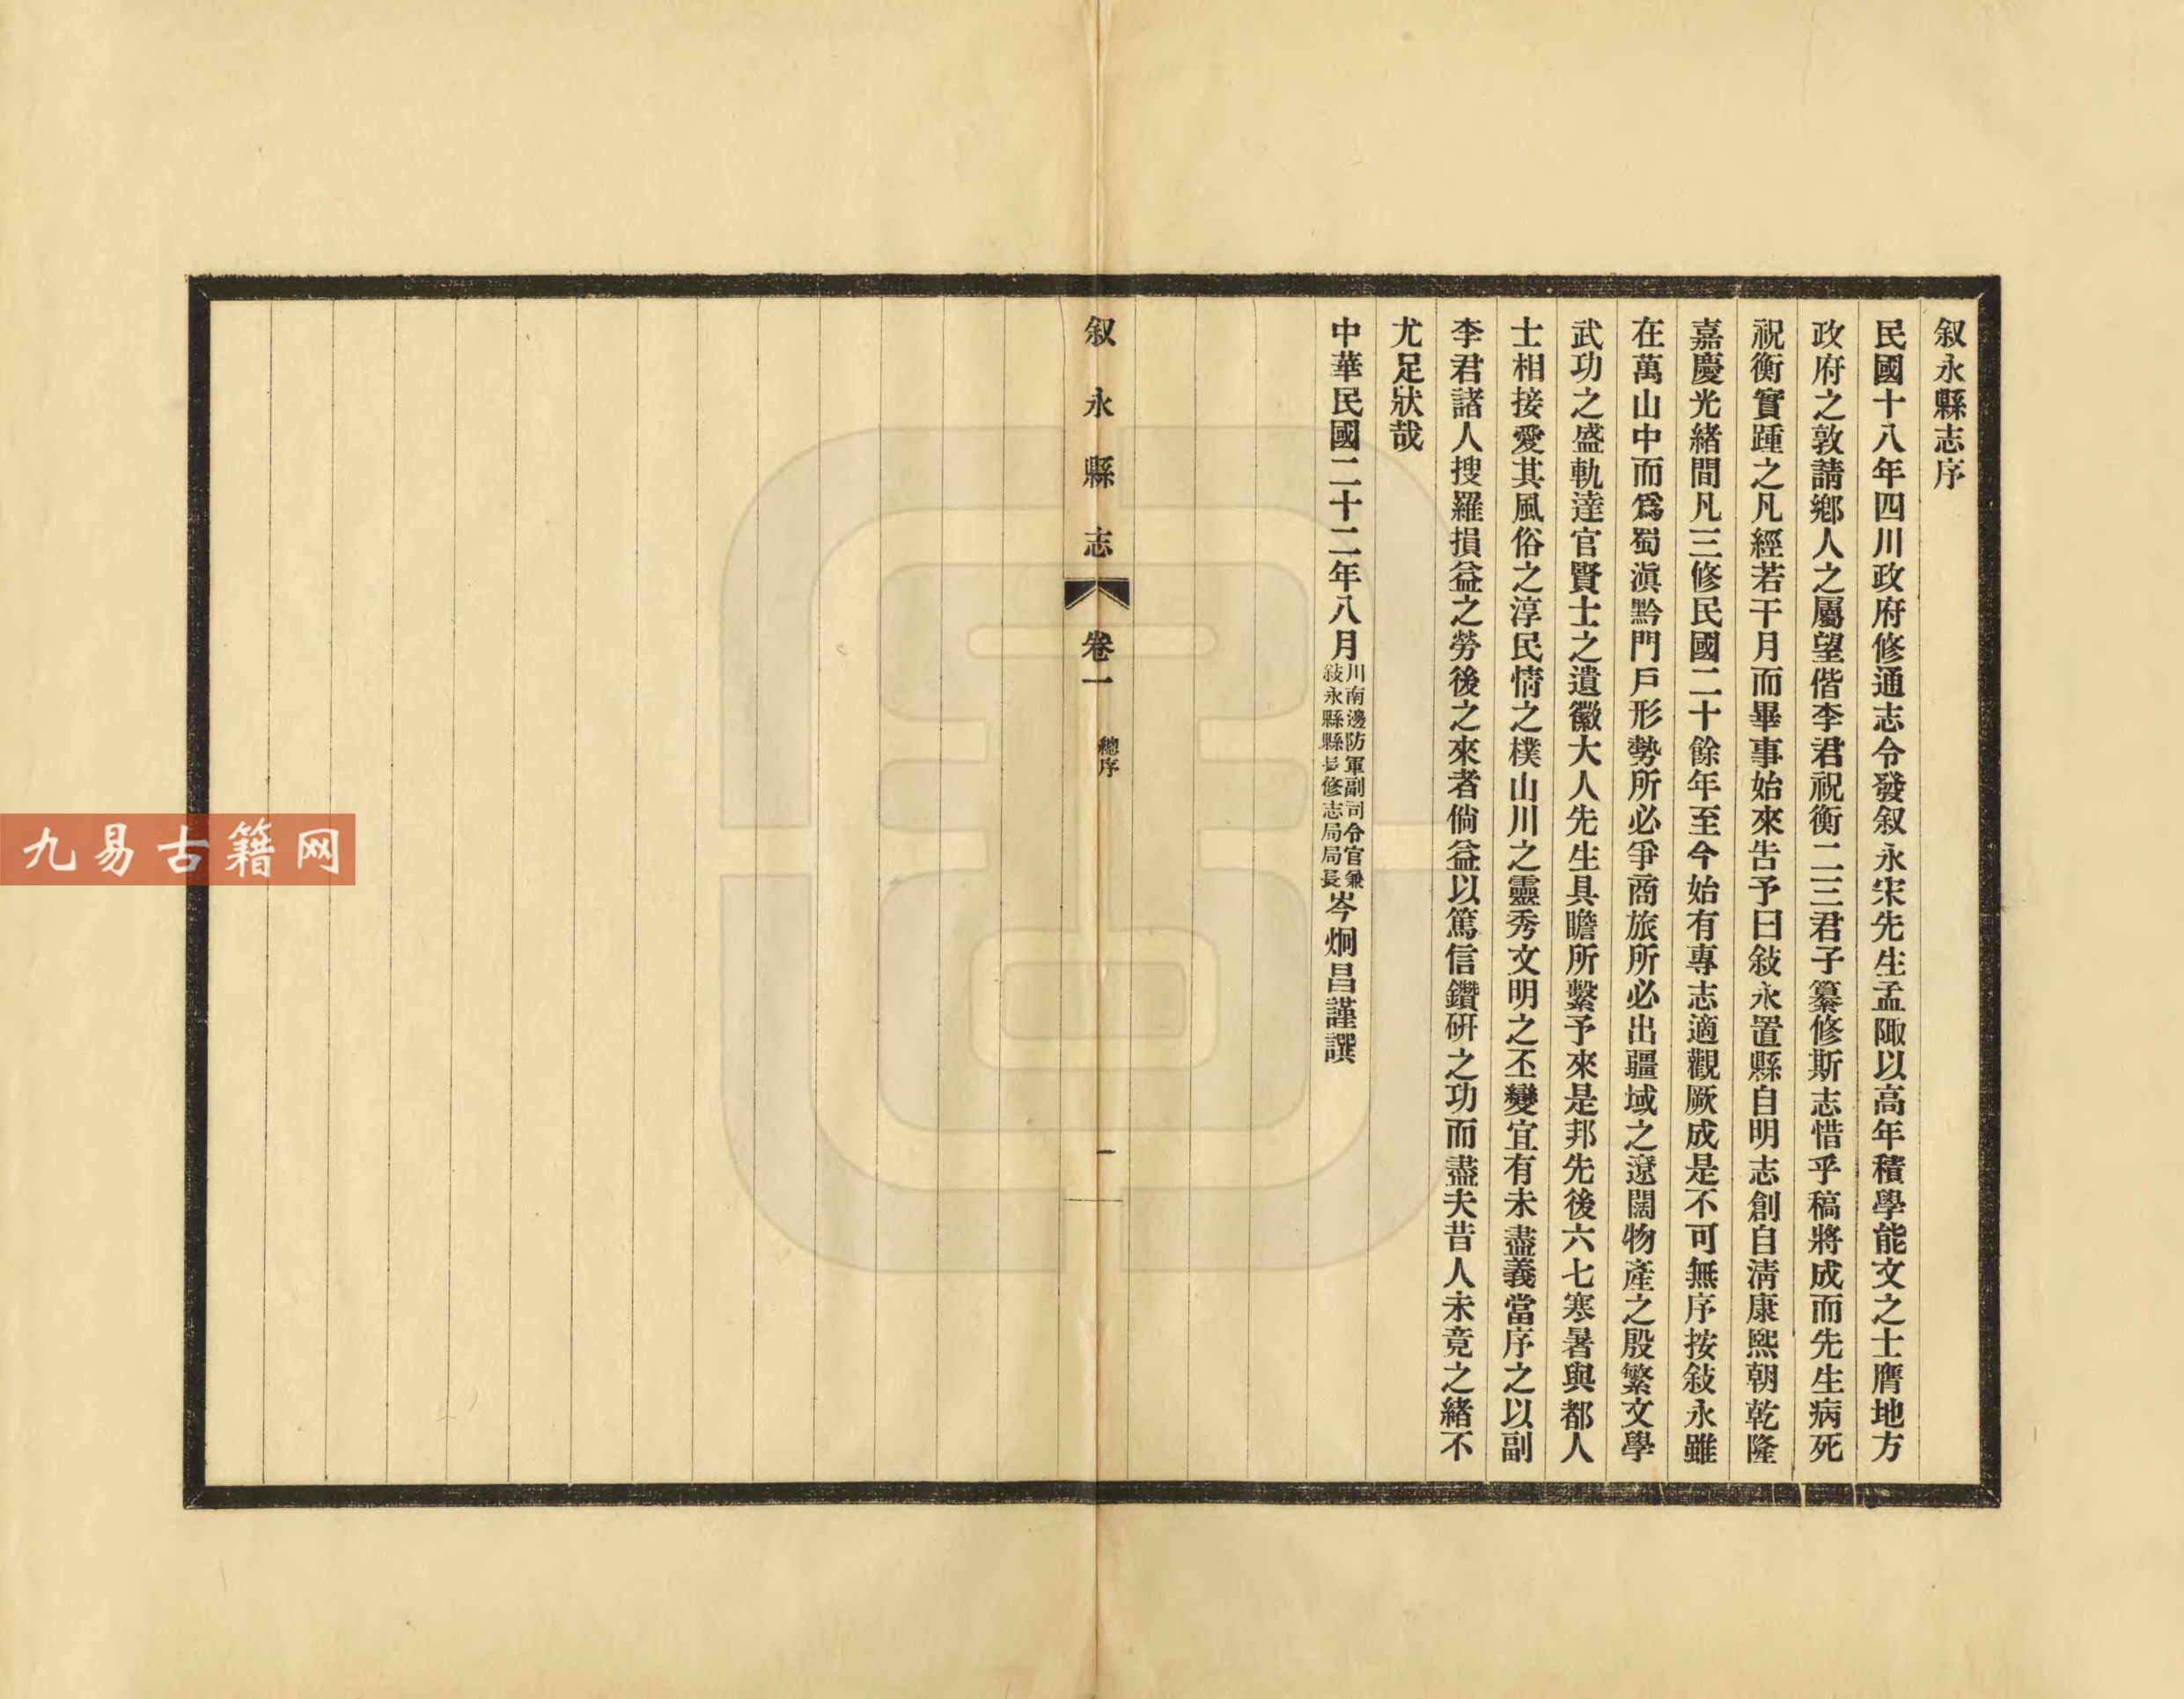 叙永縣志序
民國十八年四川政府修通志令發叙永宋先生孟陬以高年積學能文之士膺地方
政府之敦請鄉人之屬望偕李君祝衡二三君子纂修斯志惜乎稿將成而先生病死
祝衡實踵之凡經若干月而畢事始來告予曰敍永置縣自明志創自清康熙朝乾隆
嘉慶光緒間凡三修民國二十餘年至今始有專志適觀厥成是不可無序按敍永雖
在萬山中而爲蜀滇黔門戶形勢所必爭商旅所必出疆域之遼闊物產之殷繁文學
武功之盛軌達官賢士之遺徽大人先生具瞻所繫予來是邦先後六七寒暑與都人
士相接愛其風俗之淳民情之樸山川之靈秀文明之丕變宜有未盡義當序之以副
李君諸人搜羅損益之勞後之來者倘益以篤信鑽研之功而盡夫昔人未竟之緒不
尤足狀哉
中華民國二十二年八月
川南邊防軍副司令官兼
敍永縣縣長修志局局長
岑炯昌謹譔
叙永縣志
卷一
總序
一
九易古籍网